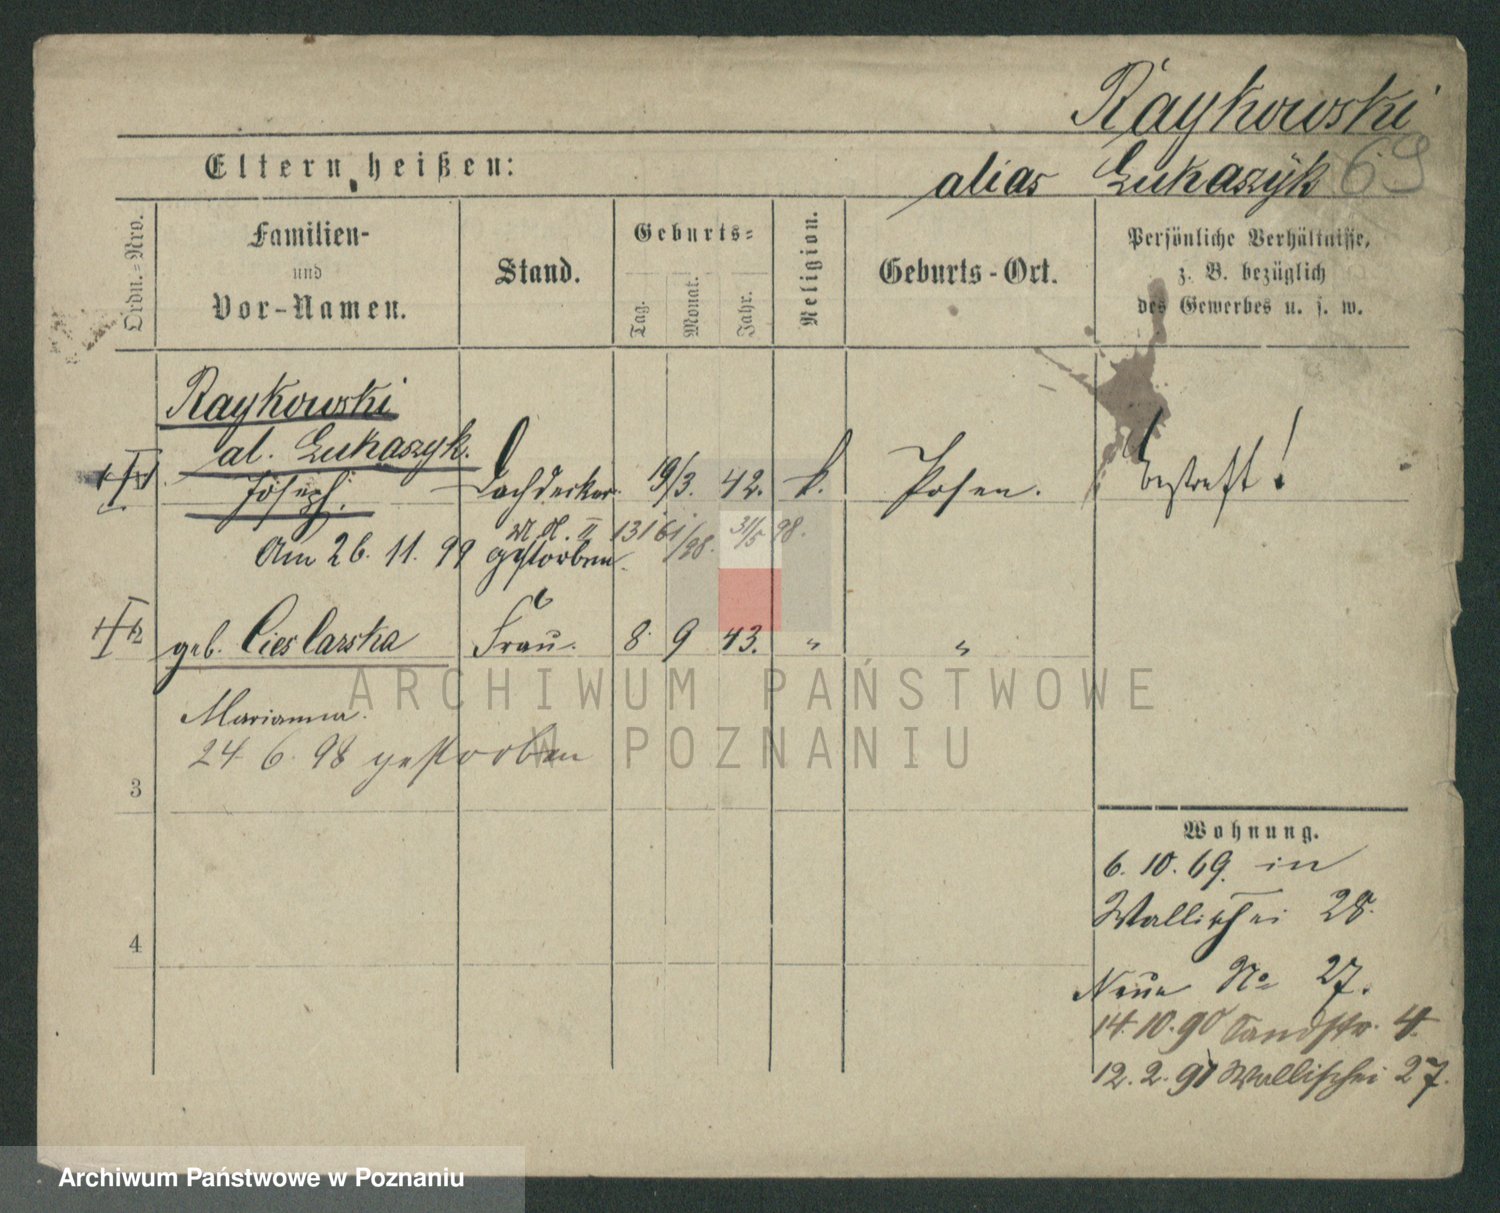 Raykowski
Eltern heißen:
alias Lukaszyk 69
Ordn.=Nro.
Familien-
und
Vor-Namen.
Stand.
Geburts=
Tag.
Monat.
Jahr.
Religion.
Geburts-Ort.
Persönliche Verhältnisse,
z. B. bezüglich
des Gewerbes u. s. w.
Raykowski
al. Lukaszyk.
1 Joseph. Dachdecker 19/3. 42. k. Posen. bestraft!
II 13161/98. 31/5 98.
Am 26. 11. 99 gestorben.
2 geb. Cieslarska Frau. 8. 9 43. " "
Marianna.
24 6. 98 gestorben
3
4
Wohnung.
6. 10. 69. in
Wallischei 28.
Neue No 27.
14. 10. 90 Sandstr. 4.
12. 2. 91 Wallischei 27.
ARCHIWUM PAŃSTWOWE
W POZNANIU
Archiwum Państwowe w Poznaniu